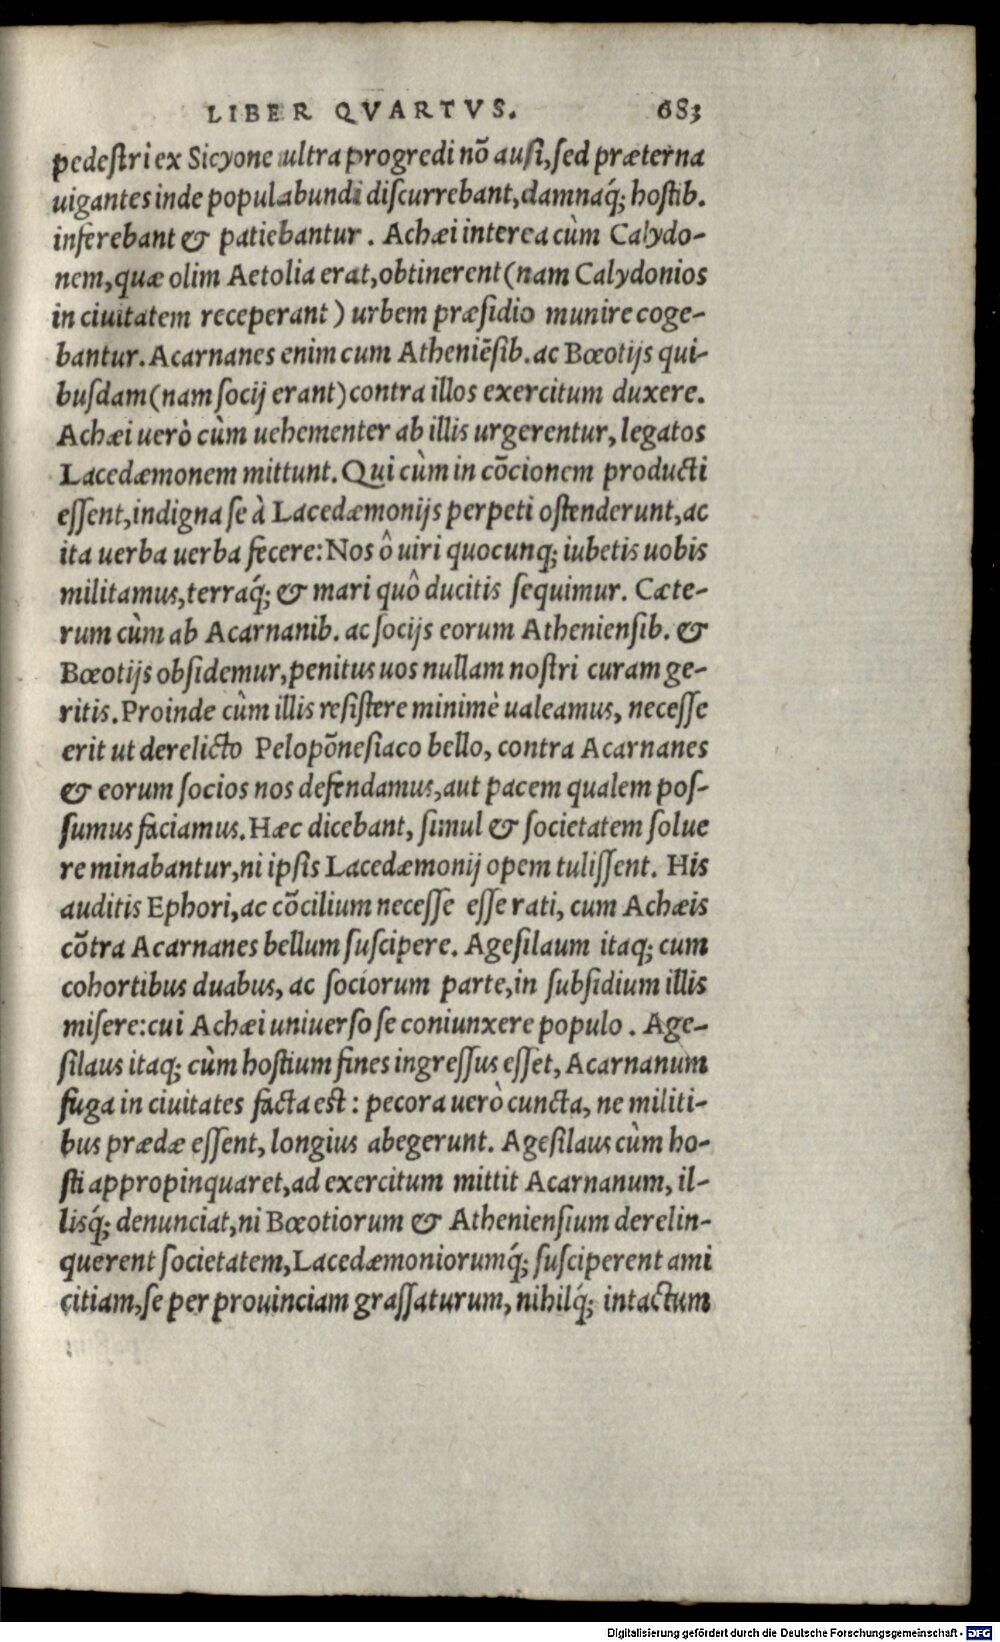 LIBER QVARTVS. 683
pedeſtri ex Sicyone ultra progredi nõ auſi, ſed præterna
uigantes inde populabundi diſcurrebant, damnaq́; hoſtib.
inferebant & patiebantur. Achæi interea cùm Calydo-
nem, quæ olim Aetolia erat, obtinerent (nam Calydonios
in ciuitatem receperant) urbem præſidio munire coge-
bantur. Acarnanes enim cum Atheniẽſib. ac Bœotijs qui-
buſdam (nam ſocij erant) contra illos exercitum duxere.
Achæi uerò cùm uehementer ab illis urgerentur, legatos
Lacedæmonem mittunt. Qui cùm in cõcionem producti
eſſent, indigna ſe à Lacedæmonijs perpeti oſtenderunt, ac
ita uerba uerba fecere: Nos ô uiri quocunq; iubetis uobis
militamus, terraq́; & mari quô ducitis ſequimur. Cæte-
rum cùm ab Acarnanib. ac ſocijs eorum Athenienſib. &
Bœotijs obſidemur, penitus uos nullam noſtri curam ge-
ritis. Proinde cùm illis reſiſtere minimè ualeamus, neceſſe
erit ut derelicto Pelopõneſiaco bello, contra Acarnanes
& eorum ſocios nos defendamus, aut pacem qualem poſ-
ſumus faciamus. Hæc dicebant, ſimul & ſocietatem ſolue
re minabantur, ni ipſis Lacedæmonij opem tuliſſent. His
auditis Ephori, ac cõcilium neceſſe eſſe rati, cum Achæis
cõtra Acarnanes bellum ſuſcipere. Ageſilaum itaq; cum
cohortibus duabus, ac ſociorum parte, in ſubſidium illis
miſere: cui Achæi uniuerſo ſe coniunxere populo. Age-
ſilaus itaq; cùm hoſtium fines ingreſſus eſſet, Acarnanum
fuga in ciuitates facta est: pecora uerò cuncta, ne militi-
bus prædæ eſſent, longius abegerunt. Ageſilaus cùm ho-
ſti appropinquaret, ad exercitum mittit Acarnanum, il-
liſq́; denunciat, ni Bœotiorum & Athenienſium derelin-
querent ſocietatem, Lacedæmoniorumq́; ſuſciperent ami
citiam, ſe per prouinciam graſſaturum, nihilq́; intactum
Digitalisierung gefördert durch die Deutsche Forschungsgemeinschaft - DFG